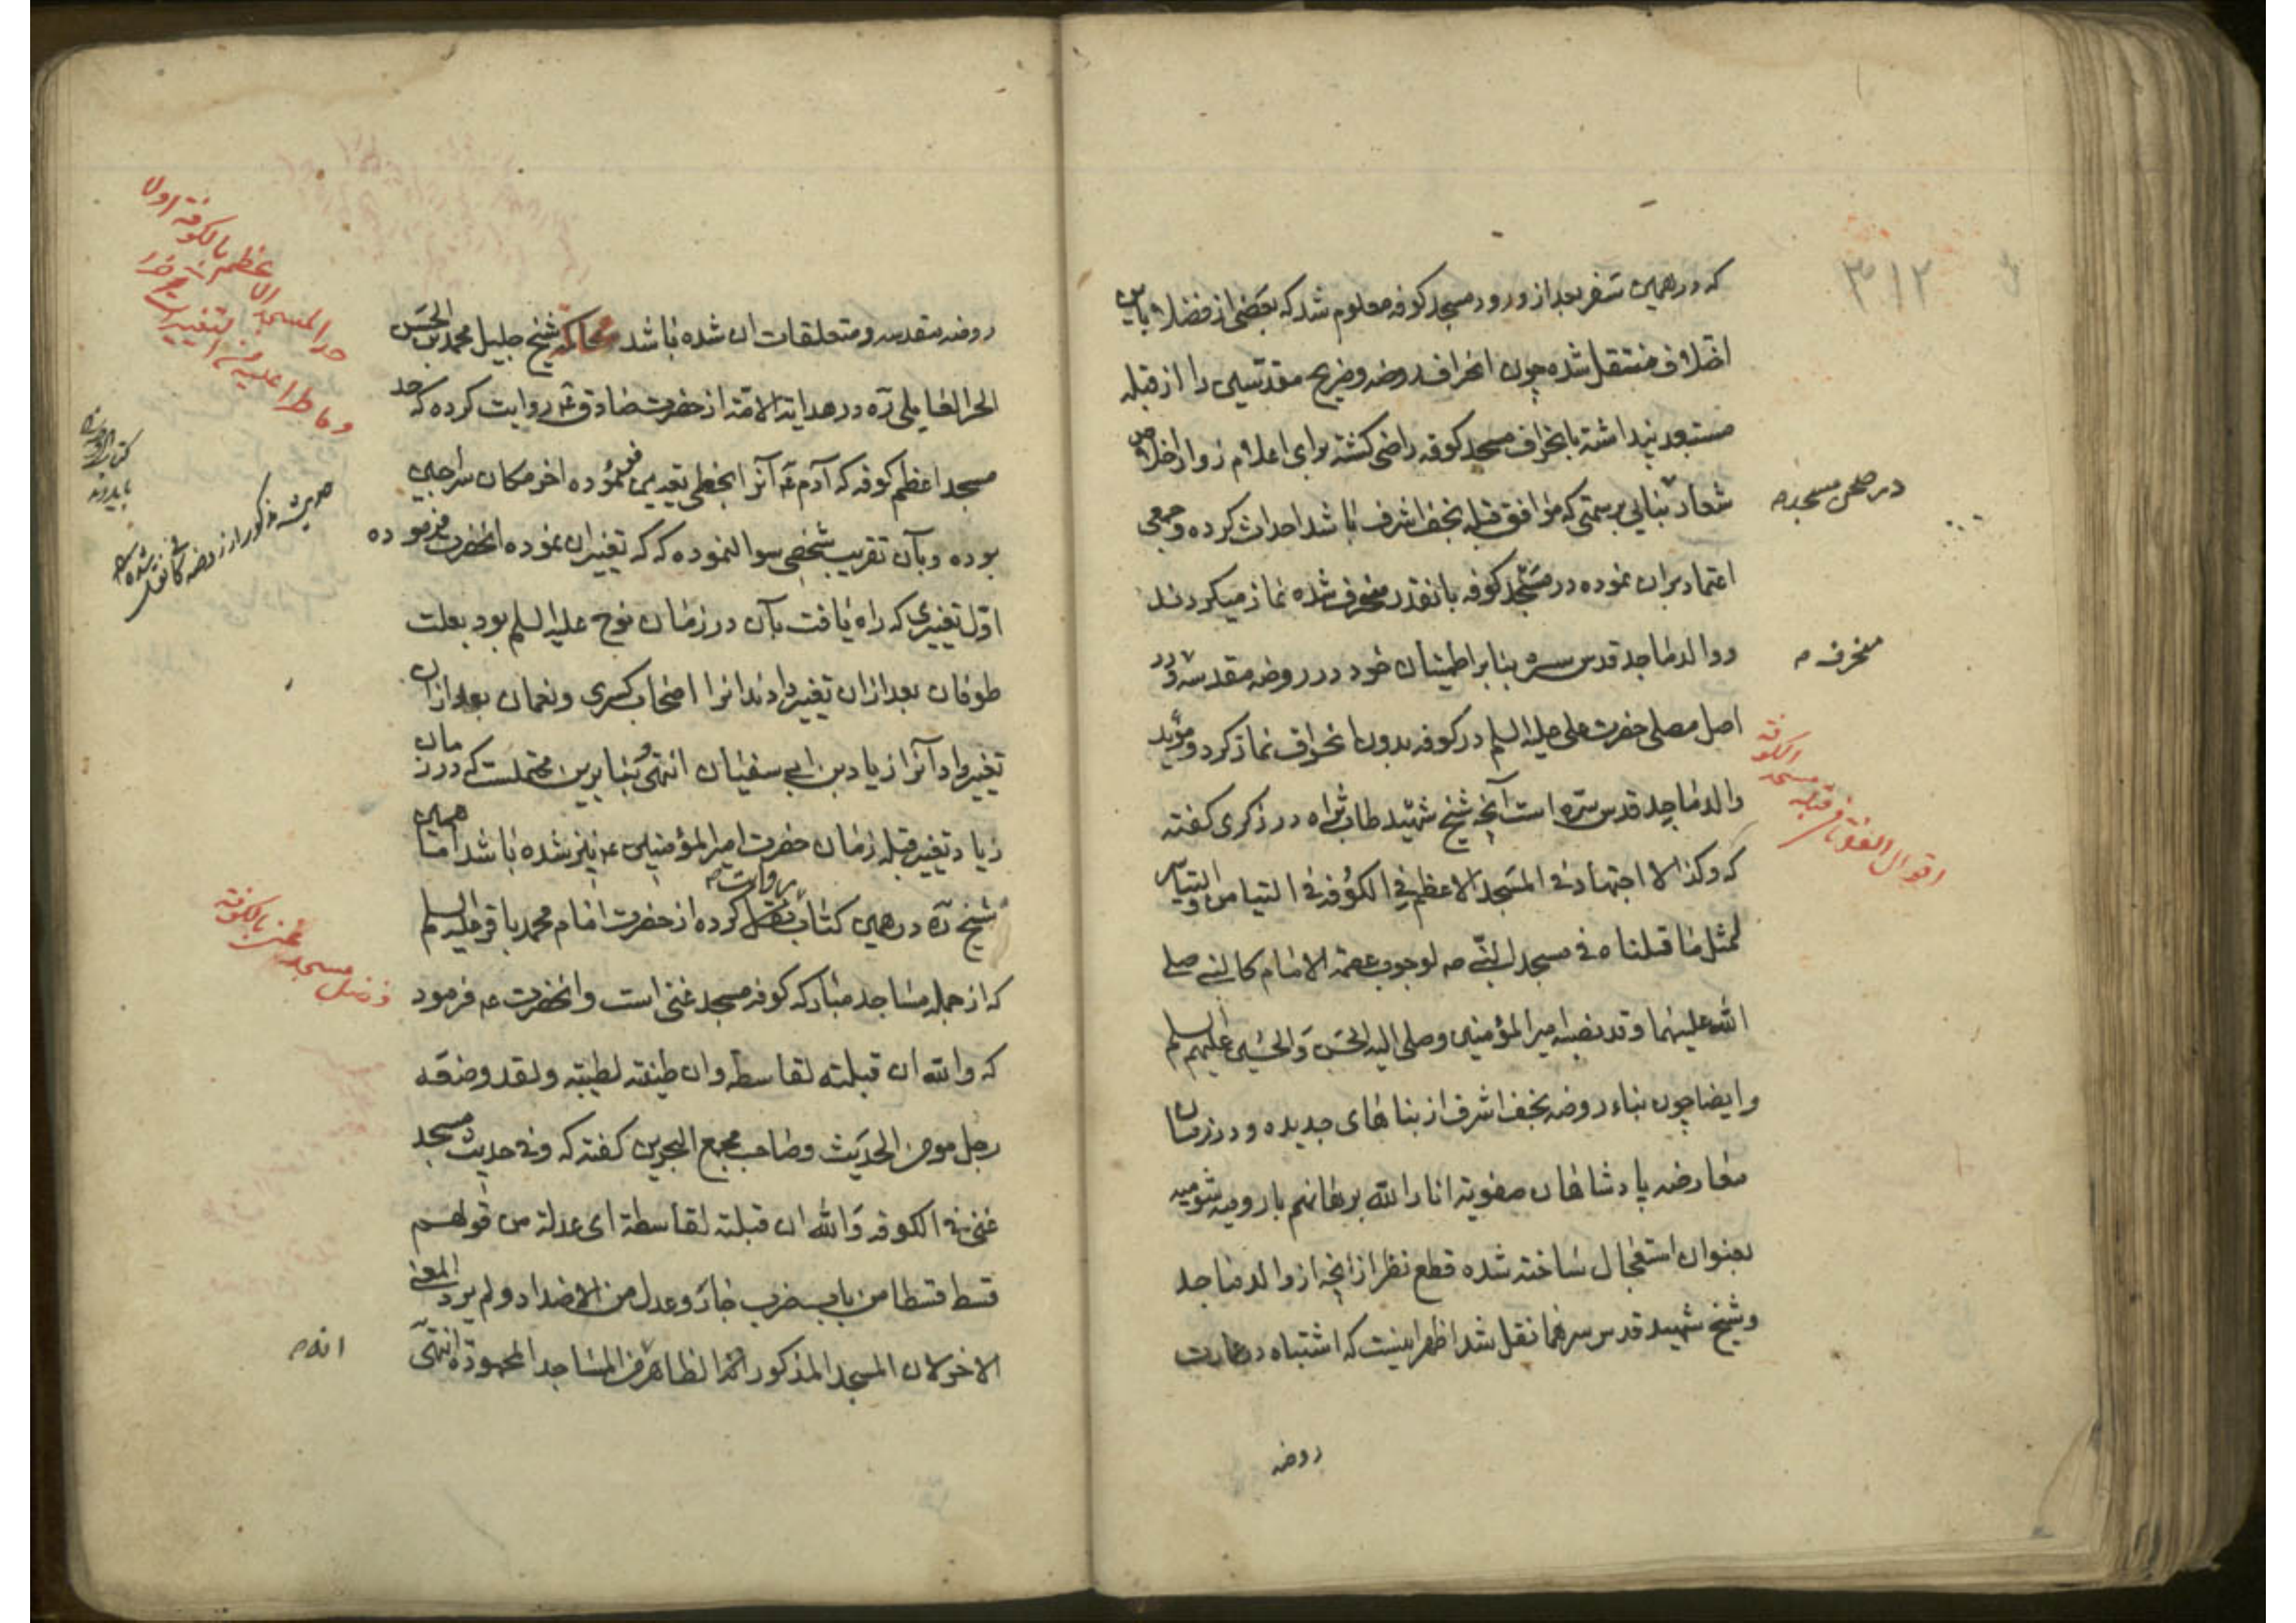 ۳۱۲
که در همین سفر بعد از ورود مسجد کوفه معلوم شد که بعضی از فضلا باین
اختلاف منتقل شده چون انحراف روضه و ضریح مقدسین را از قبله
مستبعد پنداشته بانحراف مسجد کوفه راضی گشته برای اعلام زوار اخلاص
شعار بنایی بر سمتی که موافق قبله نجف اشرف باشد احداث کرده و جمعی
در صحن مسجد
اعتماد بر ان نموده در مسجد کوفه بانقدر منحرف شده نماز میکردند
منحرف
و والد ماجد قدس سره بنابر اطمینان خود در روضه مقدسه و در
اصل مصلی حضرت علی علیه السلم در کوفه بدون انحراف نماز کرد و مؤید
اقوال الفقهاء فی قبله مسجد الکوفه
والد ماجد قدس سره است آنچه شیخ شهید طاب ثراه در ذکری گفته
که و کذا لا اجتهاد فی المسجد الاعظم فی الکوفه فی التیامن و التیاسر
لمثل ما قبلناه فی مسجد النبی ص لوجوب عصمة الامام کالنبی صلی
الله علیهما و قد نصبه امیر المؤمنین و صلی الیه الحسن و الحسین علیهم السلم
و ایضا چون بناء روضه نجف اشرف از بناهای جدیده و در زمان
معارضه پادشاهان صفویه انار الله برهانهم با رومیه شومیه
بعنوان استعجال ساخته شده قطع نظر از آنچه از والد ماجد
و شیخ شهید قدس سرهما نقل شد اظهر اینست که اشتباه در عمارت
روضه
روضه مقدسه و متعلقات ان شده باشد محاکمه شیخ جلیل محمد بن الحسن
الحر العاملی ره در هدایة الامه از حضرت صادق ع روایت کرده که حد
مسجد اعظم کوفه که آدم ع آنرا بخطی تعیین فرموده اخر مکان سراجین
بوده و بآن تقریب شخصی سوال نموده که که تغییر ان نموده انحضرت فرموده
اول تغییری که راه یافت بآن در زمان نوح علیه السلم بود بعلت
طوفان بعد از ان تغییر دادند انرا اصحاب کسری و نعمان بعد از ان
تغییر داد آنرا زیاد بن ابی سفیان انتهی و بنابرین محتملست که در زمان
زیاد تغییر قبله زمان حضرت امیر المؤمنین ع نیز شده باشد اما همین
شیخ ره در همین کتاب روایت کرده از حضرت امام محمد باقر علیه السلم
که از جمله مساجد مبارکه کوفه مسجد غنی است و انحضرت ع فرمود
که والله ان قبلته لقاسطة و ان طینته لطیبه و لقد وضعه
رجل مومن الحدیث و صاحب مجمع البحرین گفته که و فی حدیث مسجد
غنی فی الکوفه و الله ان قبلته لقاسطة ای عدلة من قولهم
قسط قسطا من باب ضرب جار و عدل من الاضداد و لم یرد المعنی
الاخر لان المسجد المذکور الظاهر من المساجد المحموده انتهی
حد المسجد الاعظم بالکوفه
فضل مسجد غنی بالکوفه
حدیث مذکور از روضه کافی نقل شده